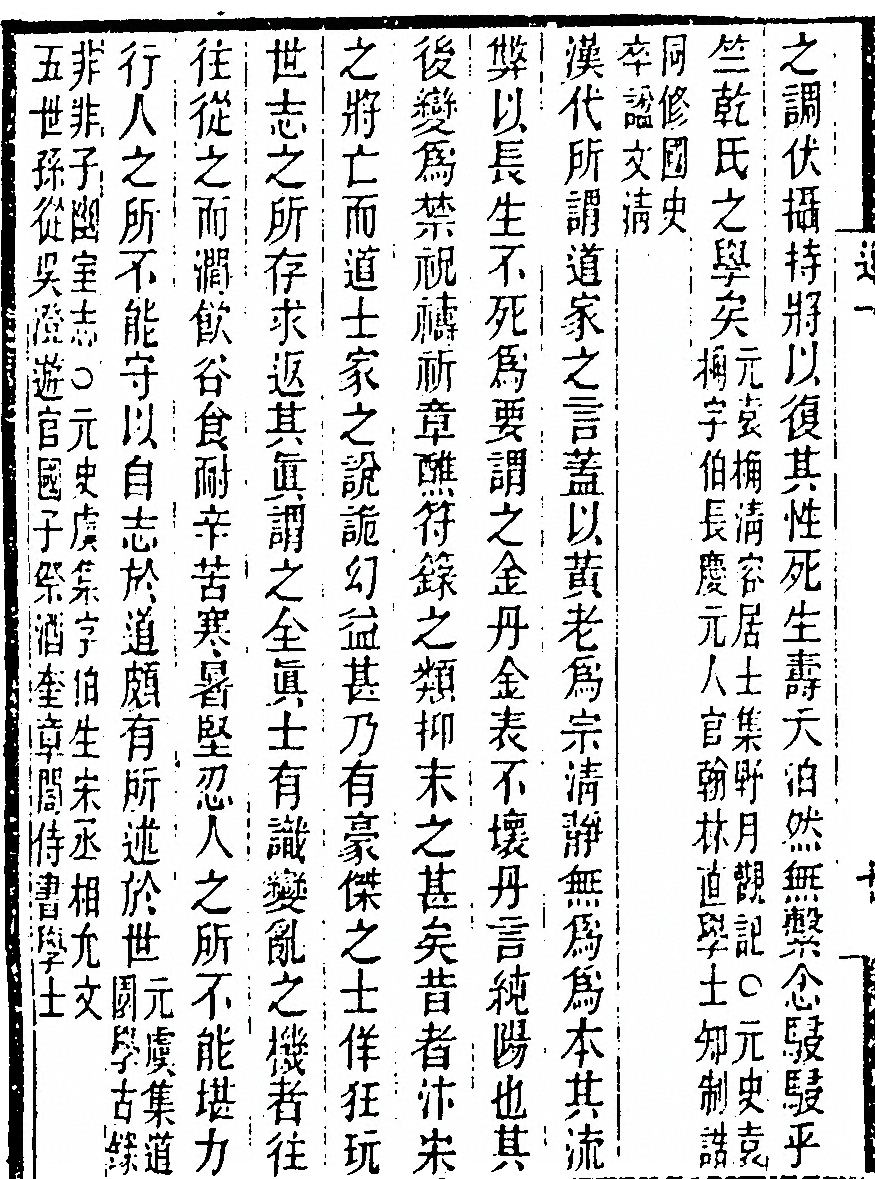 之調伏攝持將以復其性死生壽夭泊然無繫念駸駸乎
竺乾氏之學矣
元袁桷清容居士集野月觀記○元史袁
桷字伯長慶元人官翰林直學士知制誥
同修國史
卒諡文清
漢代所謂道家之言蓋以黃老爲宗清靜無爲爲本其流
弊以長生不死爲要謂之金丹金表不壞丹言純陽也其
後變爲禁祝禱祈章醮符籙之類抑末之甚矣昔者汴宋
之將亡而道士家之說詭幻益甚乃有豪傑之士佯狂玩
世志之所存求返其眞謂之全眞士有識變亂之機者往
往從之而澗飮谷食耐辛苦寒暑堅忍人之所不能堪力
行人之所不能守以自志於道頗有所述於世
元虞集道
園學古錄
非非子幽室志○元史虞集字伯生宋丞相允文
五世孫從吳澄遊官國子祭酒奎章閣侍書學士